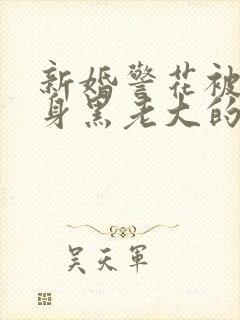 新婚警花被
身黑老大的
吴天军